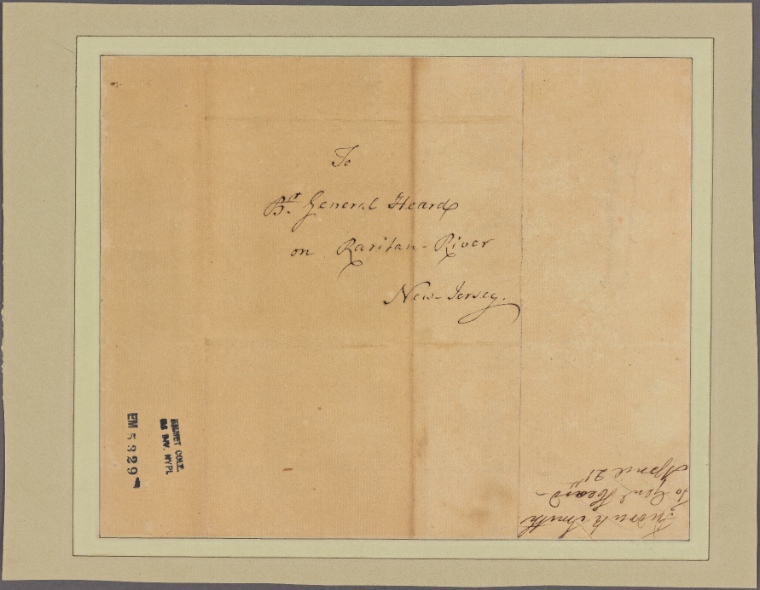 To
Bt. General Heard
on Raritan-River
New-Jersey.
EMMET COLL.
MS DIV. NYPL
EM 5329
Smith
To Genl Heard-
April 21st